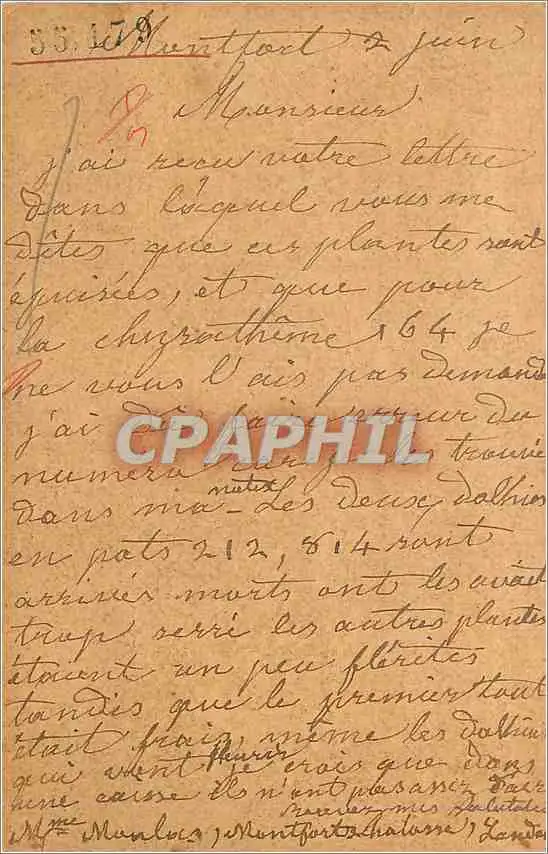 55,179
Montfort 2 juin
Monsieur
j'ai recu votre lettre
dans laquel vous me
dites que ces plantes sont
épuisées, et que pour
la chyzathême 164 je
ne vous l'ais pas demandé
j'ai dû faire erreur du
numéro car je l'ais trouvé
dans ma notte Les deux dalhias
en pots 212, 814 sont
arrivés morts ont les avait
trop serré les autres plantes
étaient un peu flétries
tandis que le premier tout
était frais, même les dalhias
qui vont fleurir je crois que dans
une caisse ils n'ont pas assez d'air
recevez mes salutations
Mme Moulas, Montfort Chalosse, Landes
CPAPHIL